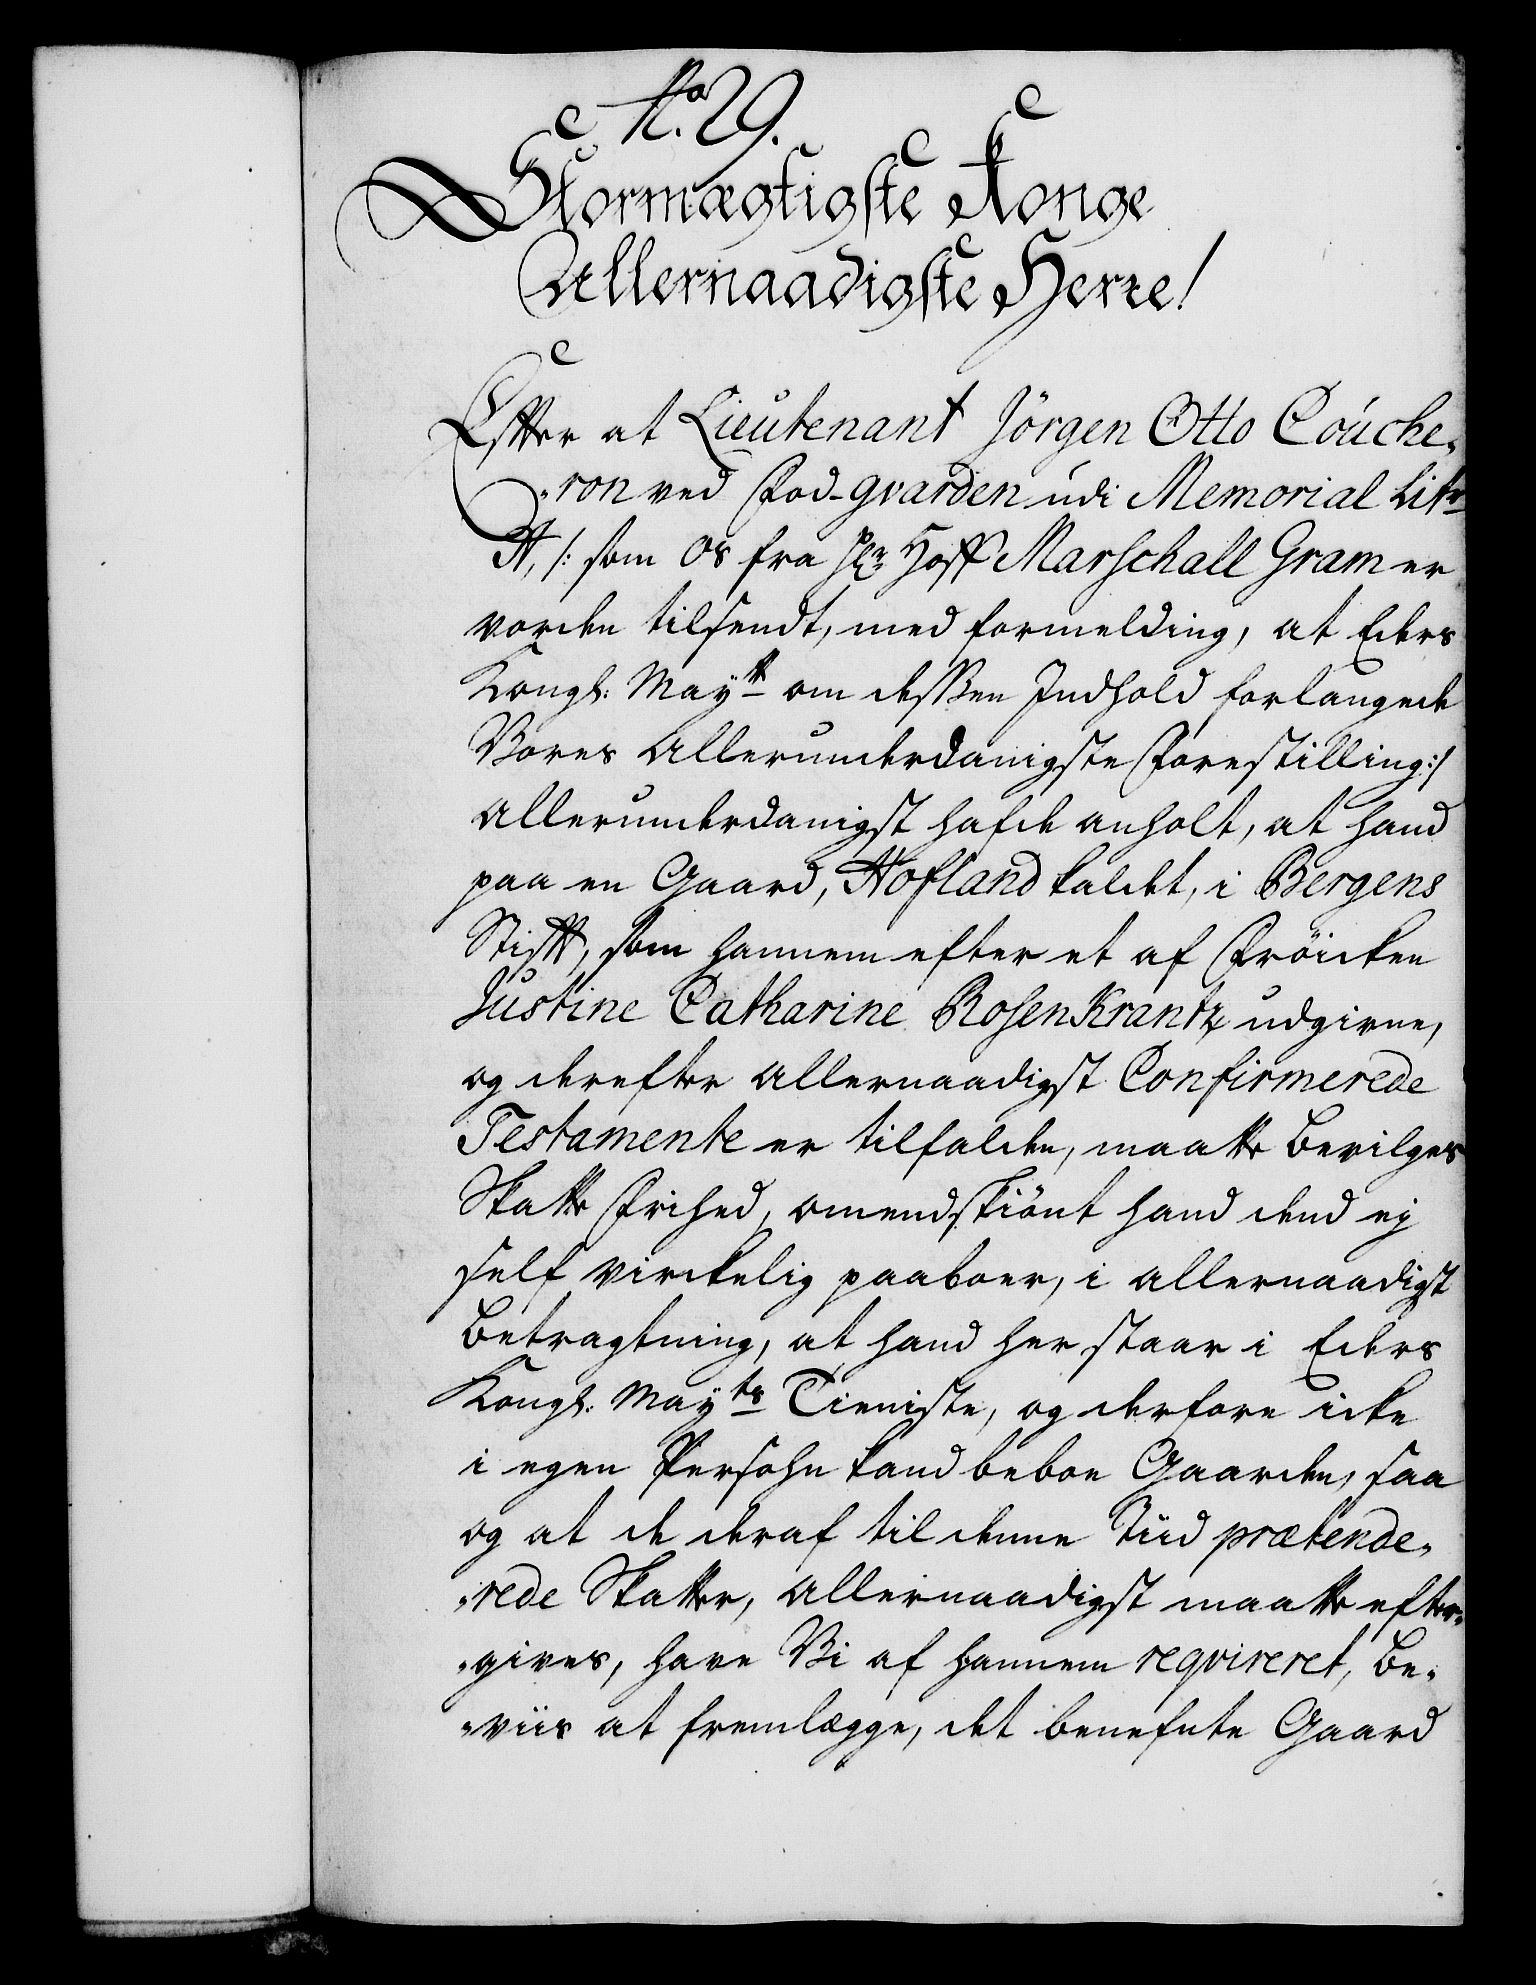 No. 29.
Stormægtigste Konge
Allernaadigste Herre!
Efter at Lieutenant Jörgen Otto Couche„
„ron ved Fod-gvarden udi Memorial Litr
A, /: som os fra Hr. Hoff Marschall Gram er
vorden tilsendt, med formelding, at Eders
Kongl: Maytt om dessen Indhold forlangede
Vores allerunderdanigste Forestilling :/
allerunderdanigst hafde anholt, at hand
paa en Gaard, Hofland kaldet, i Bergens
Stift, som hannem efter et af Fröicken
Justine Catharine RosenKrantz udgivne,
og derefter allernaadigst Confirmerede
Testamente er tilfalden, maatte bevilges
Skatte Frihed, omendskiönt hand dend ej
self virckelig paaboer, i allernaadigst
betragtning, at hand her staar i Eders
Kongl: Mayts Tieniste, og derfore icke
i egen Persohn kand beboe Gaarden, saa
og at de deraf til denne Tiid prætende„
„rede Skatter, allernaadigst maatte efter„
„gives, have Vi af hannem reqvireret, be„
„viis at fremlægge, det benefnte Gaard